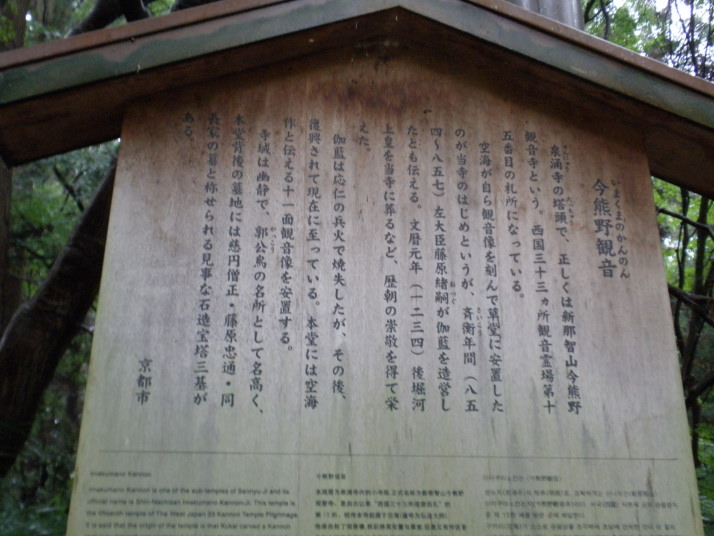 いまくまのかんのん
今熊野観音
泉涌寺の塔頭で、正しくは新那智山今熊野
観音寺という。西国三十三ヵ所観音霊場第十
五番目の札所になっている。
空海が自ら観音像を刻んで草堂に安置した
のが当寺のはじめというが、斉衡年間(八五
四〜八五七)左大臣藤原緒嗣が伽藍を造営し
たとも伝える。文暦元年(一二三四)後堀河
上皇を当寺に葬るなど、歴朝の崇敬を得て栄
えた。
伽藍は応仁の兵火で焼失したが、その後、
復興されて現在に至っている。本堂には空海
作と伝える十一面観音像を安置する。
寺域は幽静で、郭公鳥の名所として名高く、
本堂背後の墓地には慈円僧正・藤原忠通・同
長家の墓と称せられる見事な石造宝塔三基が
ある。
京都市
Imakumano Kannon
Imakumano Kannon is one of the sub-temples of Sennyu-Ji and its
official name is Shin-Nachisan Imakumano Kannon-Ji. This temple is
the fifteenth temple of The West Japan 33 Kannon Temple Pilgrimage.
It is said that the origin of the temple is that Kukai carved a Kannon
今熊野观音